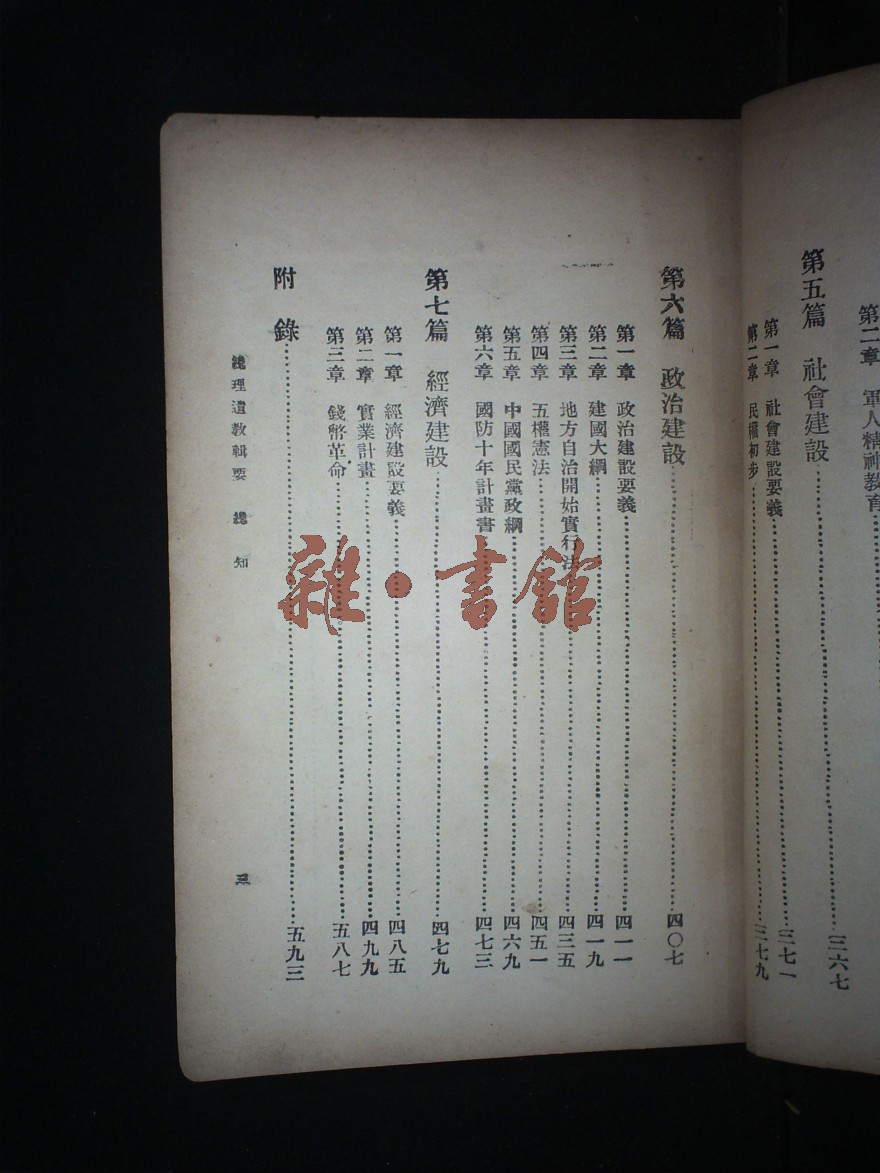 第二章　軍人精神教育
第五篇　社會建設……三六七
第一章　社會建設要義……三七一
第二章　民權初步……三七九
第六篇　政治建設……四〇七
第一章　政治建設要義……四一一
第二章　建國大綱……四一九
第三章　地方自治開始實行法……四三五
第四章　五權憲法……四五一
第五章　中國國民黨政綱……四六九
第六章　國防十年計畫書……四七三
第七篇　經濟建設……四七九
第一章　經濟建設要義……四八五
第二章　實業計畫……四九九
第三章　錢幣革命……五八七
附錄……五九三
總理遺教輯要　總　知
三
雜·書館